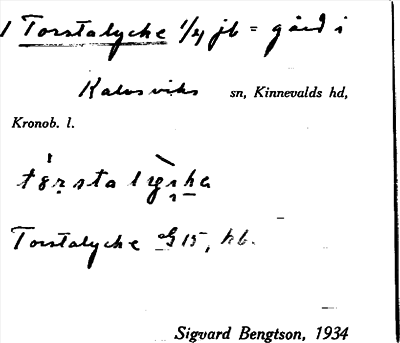 1 Torstalycke 1/4 jb = gård i
Kalvsviks sn, Kinnevalds hd,
Kronob. l.
Torstalycke G 15, hb.
Sigvard Bengtson, 1934